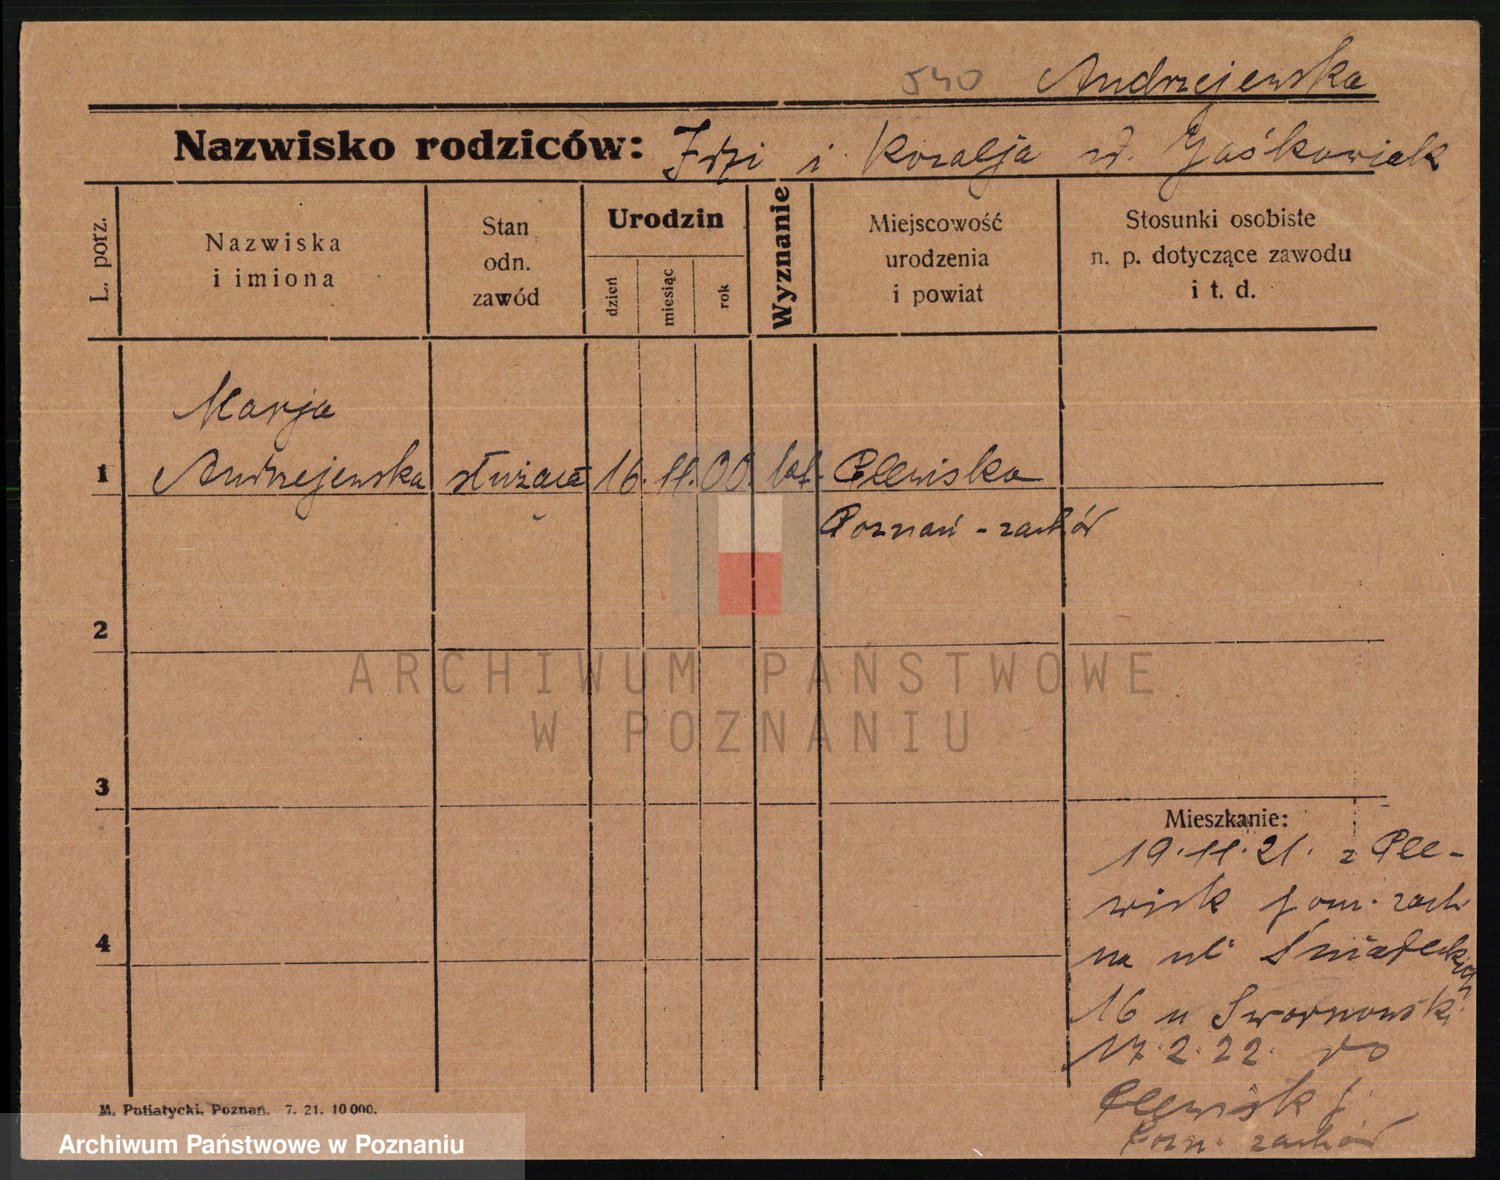 540 Andrzejewska
Nazwisko rodziców: Idzi i Rozalja zd. Jaśkowiak
L. porz.
Nazwiska
i imiona
Stan
odn.
zawód
Urodzin
dzień
miesiąc
rok
Wyznanie
Miejscowość
urodzenia
i powiat
Stosunki osobiste
n. p. dotyczące zawodu
i t. d.
Marja
1 Andrzejewska służąca 16. 11. 00. kat. Plewiska
Poznań - zachód
2
ARCHIWUM PAŃSTWOWE
W POZNANIU
3
Mieszkanie:
19.11.21. z Ple-
wisk pozn. zach
4
na ul Śniadeckich
16 u Swornowski
17.2.22. do
Plewisk
Pozn. zachód
M. Putiatycki, Poznań. 7. 21. 10 000.
Archiwum Państwowe w Poznaniu